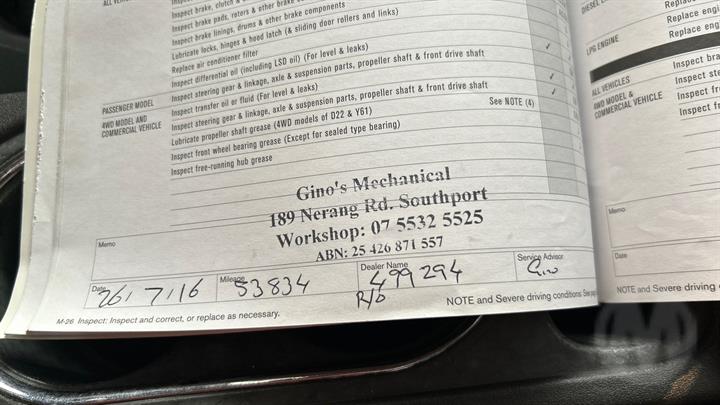 ALL VEHICLES
Inspect brake, clutch &
Inspect brake pads, rotors & other brake
Inspect brake linings, drums & other brake components
Lubricate locks, hinges & hood latch (& sliding door rollers and links)
Replace air conditioner filter
Inspect differential oil (including LSD oil) (For level & leaks)
PASSENGER MODEL Inspect steering gear & linkage, axle & suspension parts, propeller shaft & front drive shaft
4WD MODEL AND COMMERCIAL VEHICLE Inspect transfer oil or fluid (For level & leaks)
Inspect steering gear & linkage, axle & suspension parts, propeller shaft & front drive shaft
Lubricate propeller shaft grease (4WD models of D22 & Y61) See NOTE (4)
Inspect front wheel bearing grease (Except for sealed type bearing)
Inspect free-running hub grease
Gino's Mechanical
189 Nerang Rd. Southport
Workshop: 07 5532 5525
ABN: 25 426 871 557
Memo
Date 26/7/16 Mileage 53834 Dealer Name 499294 Service Advisor Gino
R/O
M-26 Inspect: Inspect and correct, or replace as necessary.
NOTE and Severe driving conditions. See
Replace
Replace engi
LPG ENGINE Replace engi
ALL VEHICLES Inspect bra
4WD MODEL & COMMERCIAL VEHICLE Inspect ste
Inspect fr
Inspect f
Memo
Date
NOTE and Severe driving